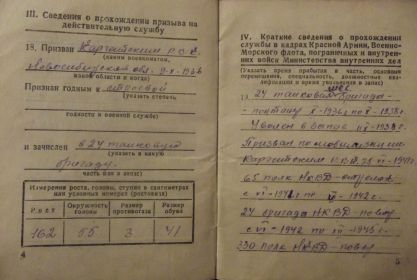 III. Сведения о прохождении призыва на
действительную службу
18. Призван Каргатским Р.В.К.
(каким военкоматом,
Новосибирской обл. 9-X-1936
какой области и когда)
Признан годным к строевой
(указать степень
годности к военной службе)
и зачислен в 24 танковую
(указать в какую
бригаду.
часть или в запас)
Измерения роста, головы, ступни в сантиметрах
или условных номерах (ростовка)
Рост Окружность головы Размер противогаза Размер обуви
162 55 3 41
4
IV. Краткие сведения о прохождении
службы в кадрах Красной Армии, Военно-
Морского флота, пограничных и внутрен-
них войск Министерства внутренних дел
(Указать время прибытия в часть, основные
перемещения, специальность, должностные квали-
фикации и время увольнения в запас)
24 танковая бригада
X-1936г по 1938г.
Уволен в запас 1938г.
Призван по мобилизации
Каргатским Р.В.К. 1941г.
65 полк НКВД-
с 1941г по 1942г.
24 бригада НКВД-повар
с VI-1942 по 1943г.
330 полк НКВД-повар
5